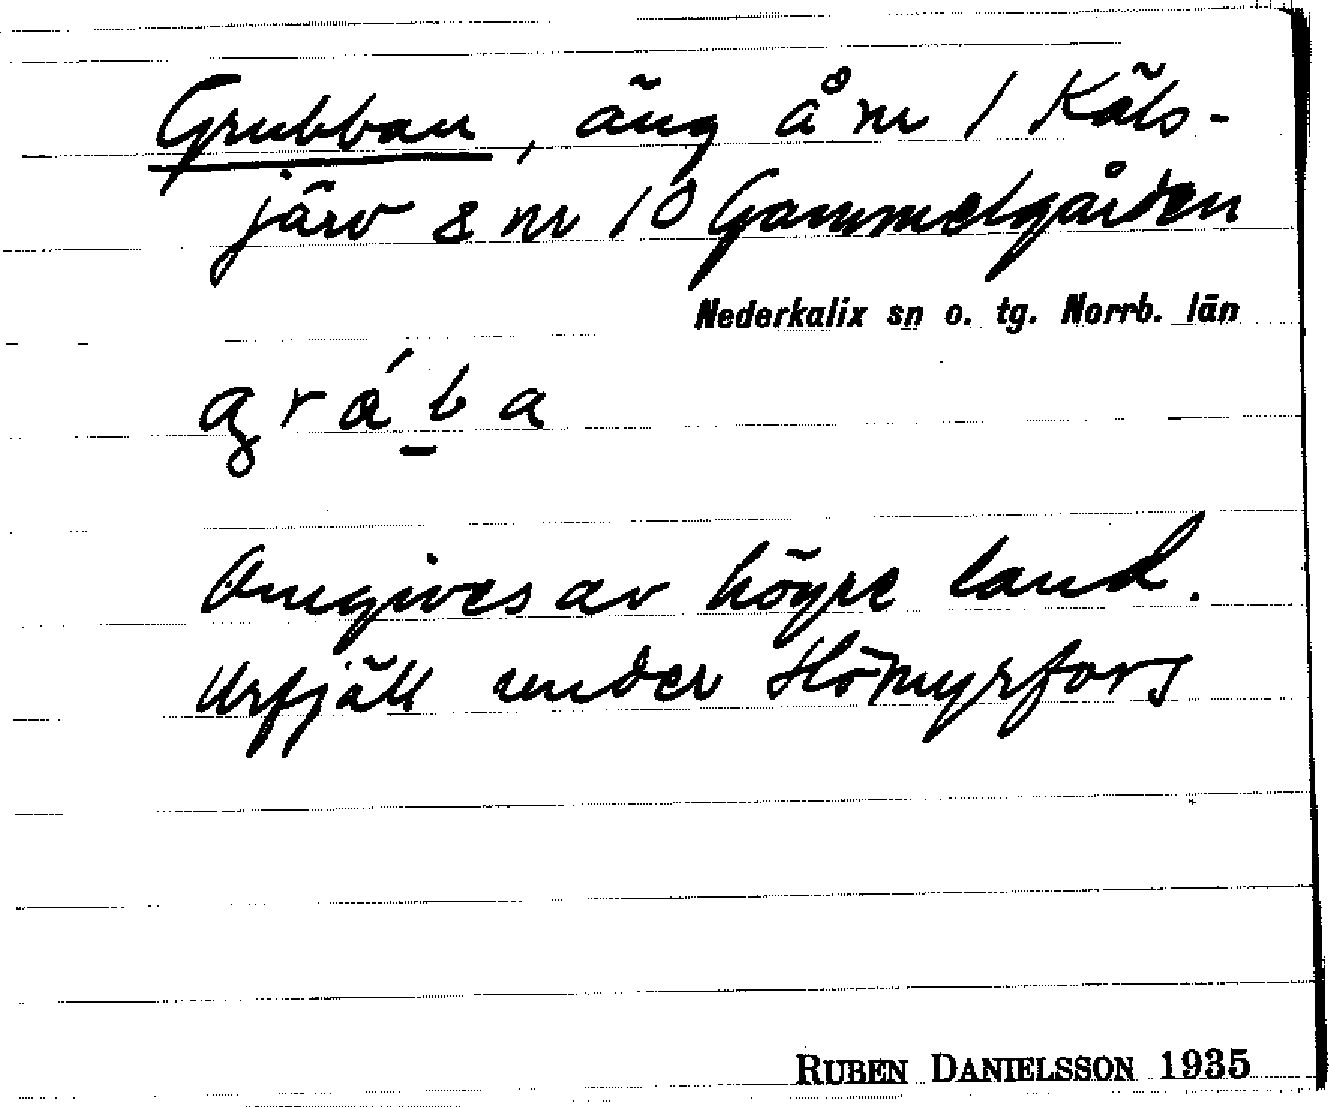 Grubban, äng å nr 1 Käls-
järv & nr 10 Gammelgården
Nederkalix sn o. tg. Norrb. län
gráb̲a
Omgives av högre land.
Urfjäll under Hömyrfors
RUBEN DANIELSSON 1935